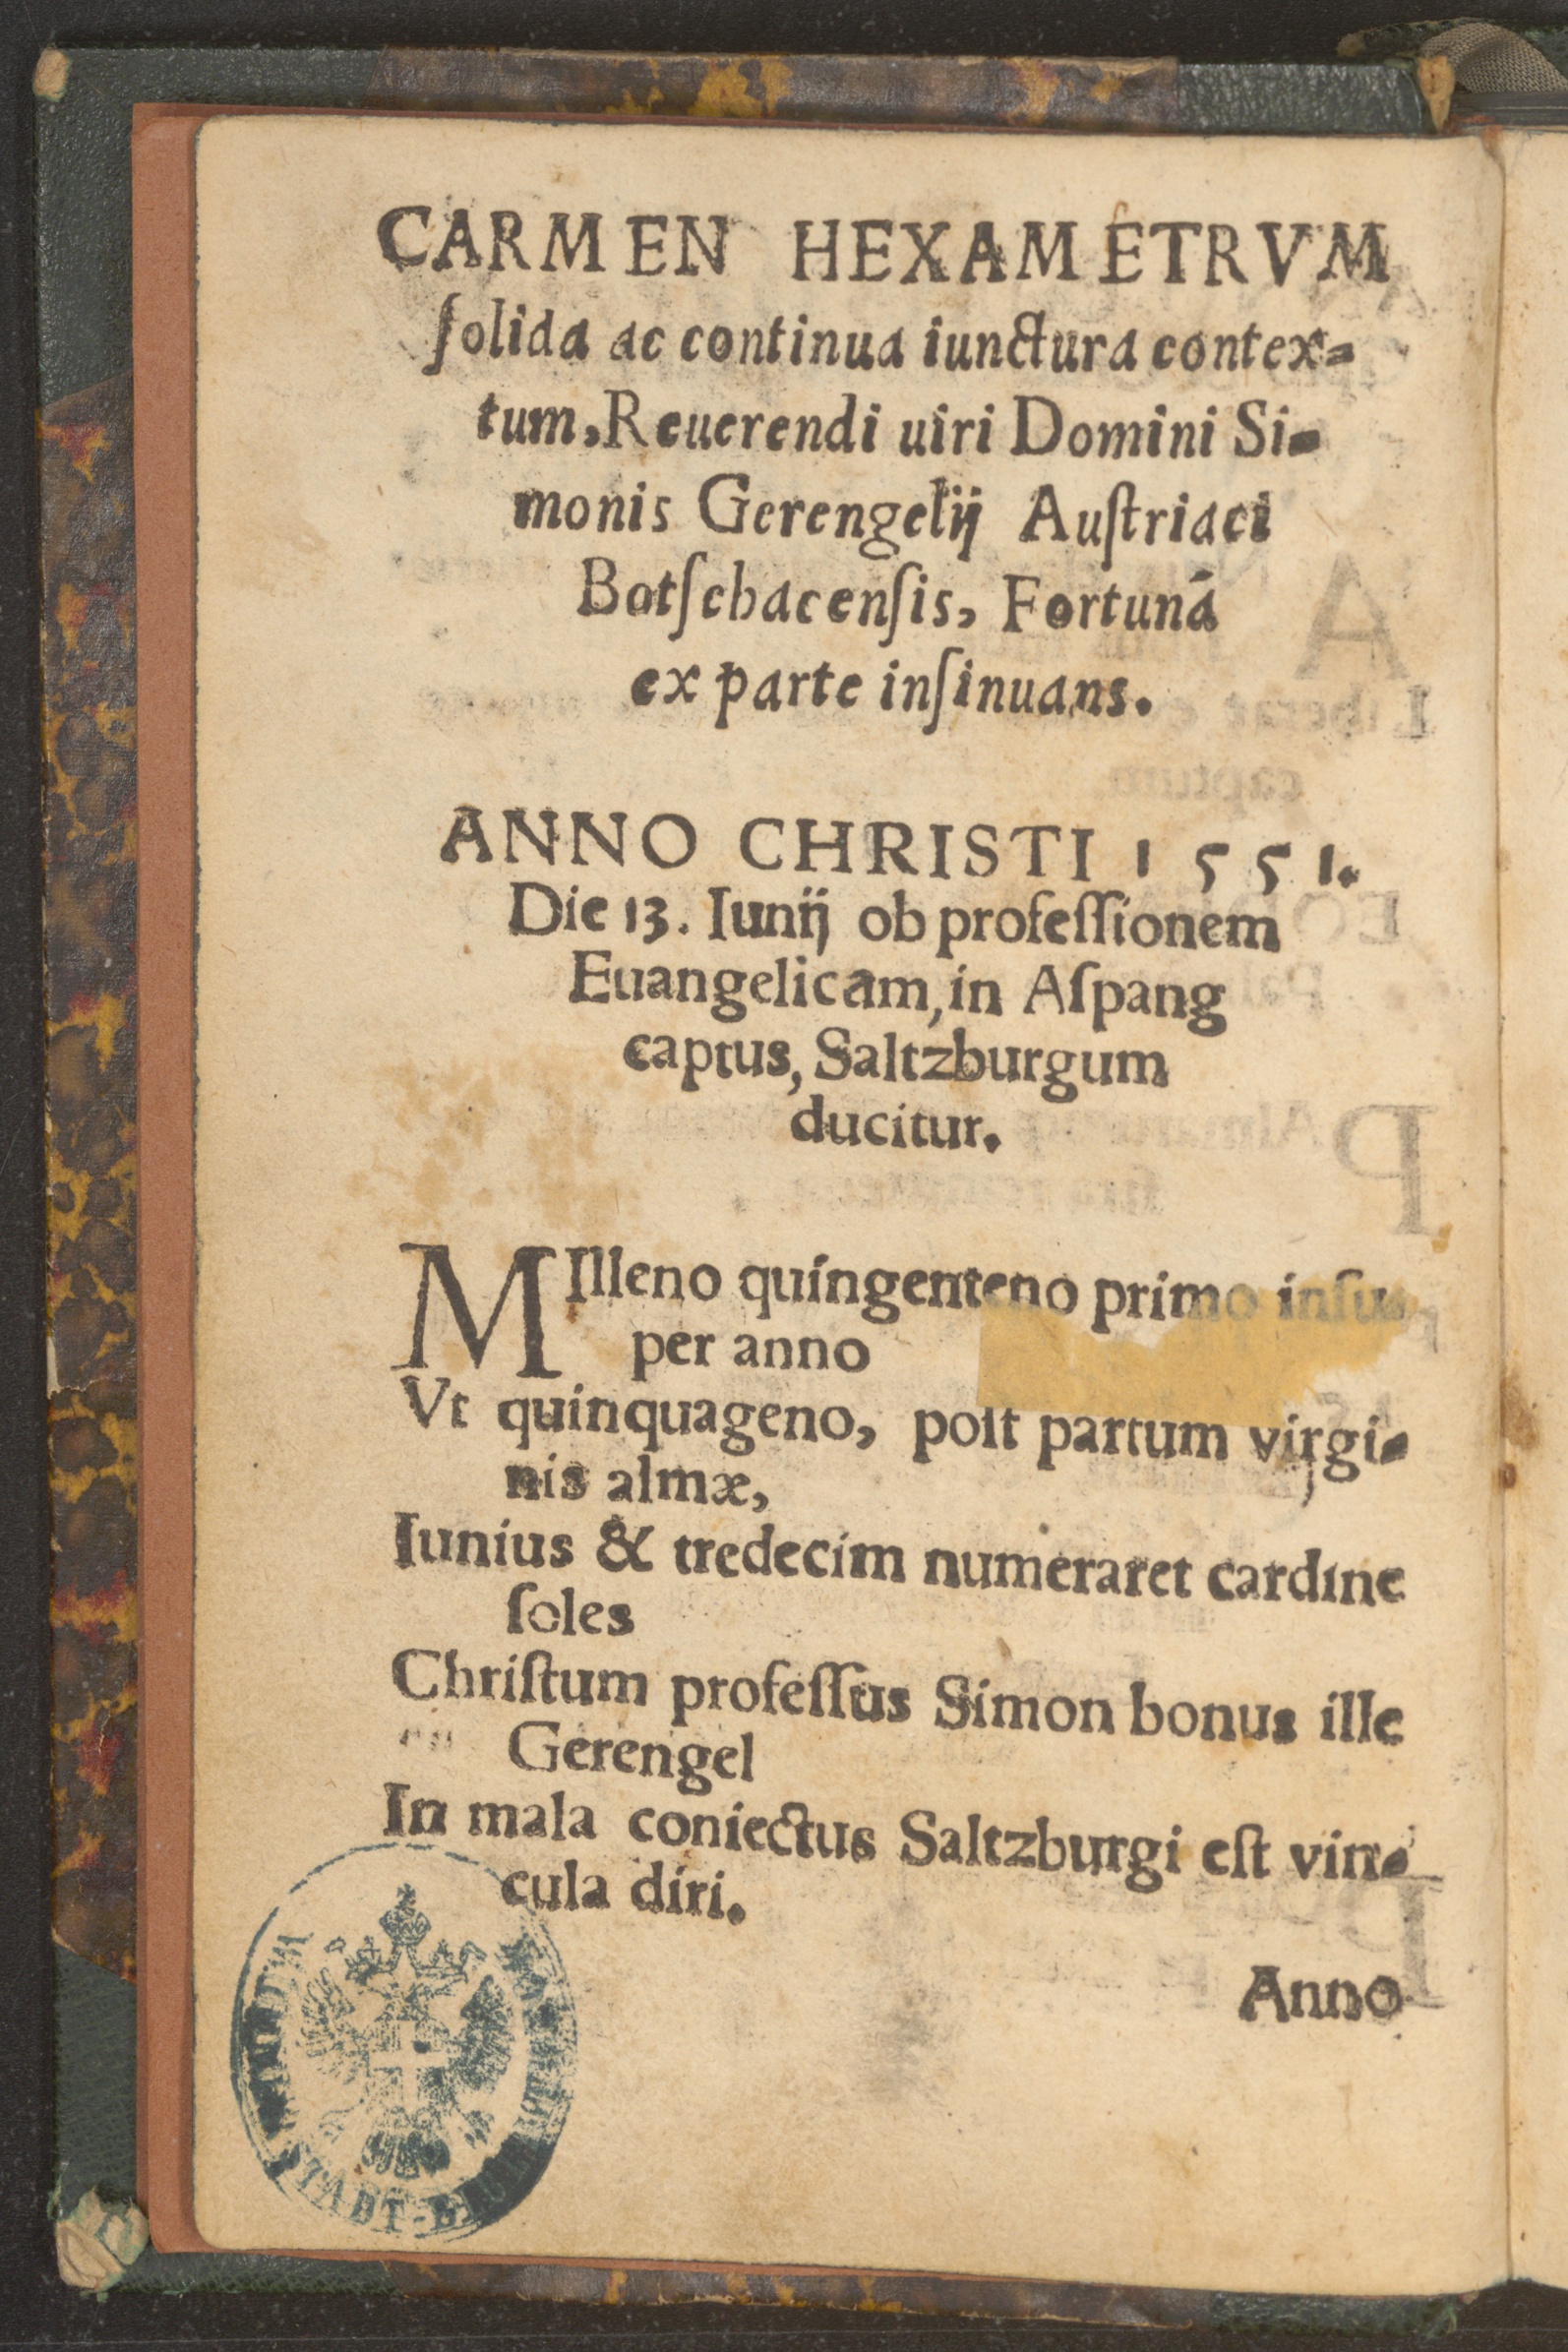 CARMEN HEXAMETRVM
ſolida ac continua iunctura contex-
tum, Reuerendi uiri Domini Si-
monis Gerengelij Auſtriaci
Botſchacenſis, Fortunã
ex parte inſinuans.
ANNO CHRISTI 1551.
Die 13. Iunij ob profeſſionem
Euangelicam, in Aſpang
captus, Saltzburgum
ducitur.
MIlleno quingenteno primo inſu
per anno
Vt quinquageno, poſt partum virgi-
nis almæ,
Iunius & tredecim numeraret cardine
ſoles
Chriſtum profeſſus Simon bonus ille
Gerengel
In mala coniectus Saltzburgi eſt vin-
cula diri.
Anno